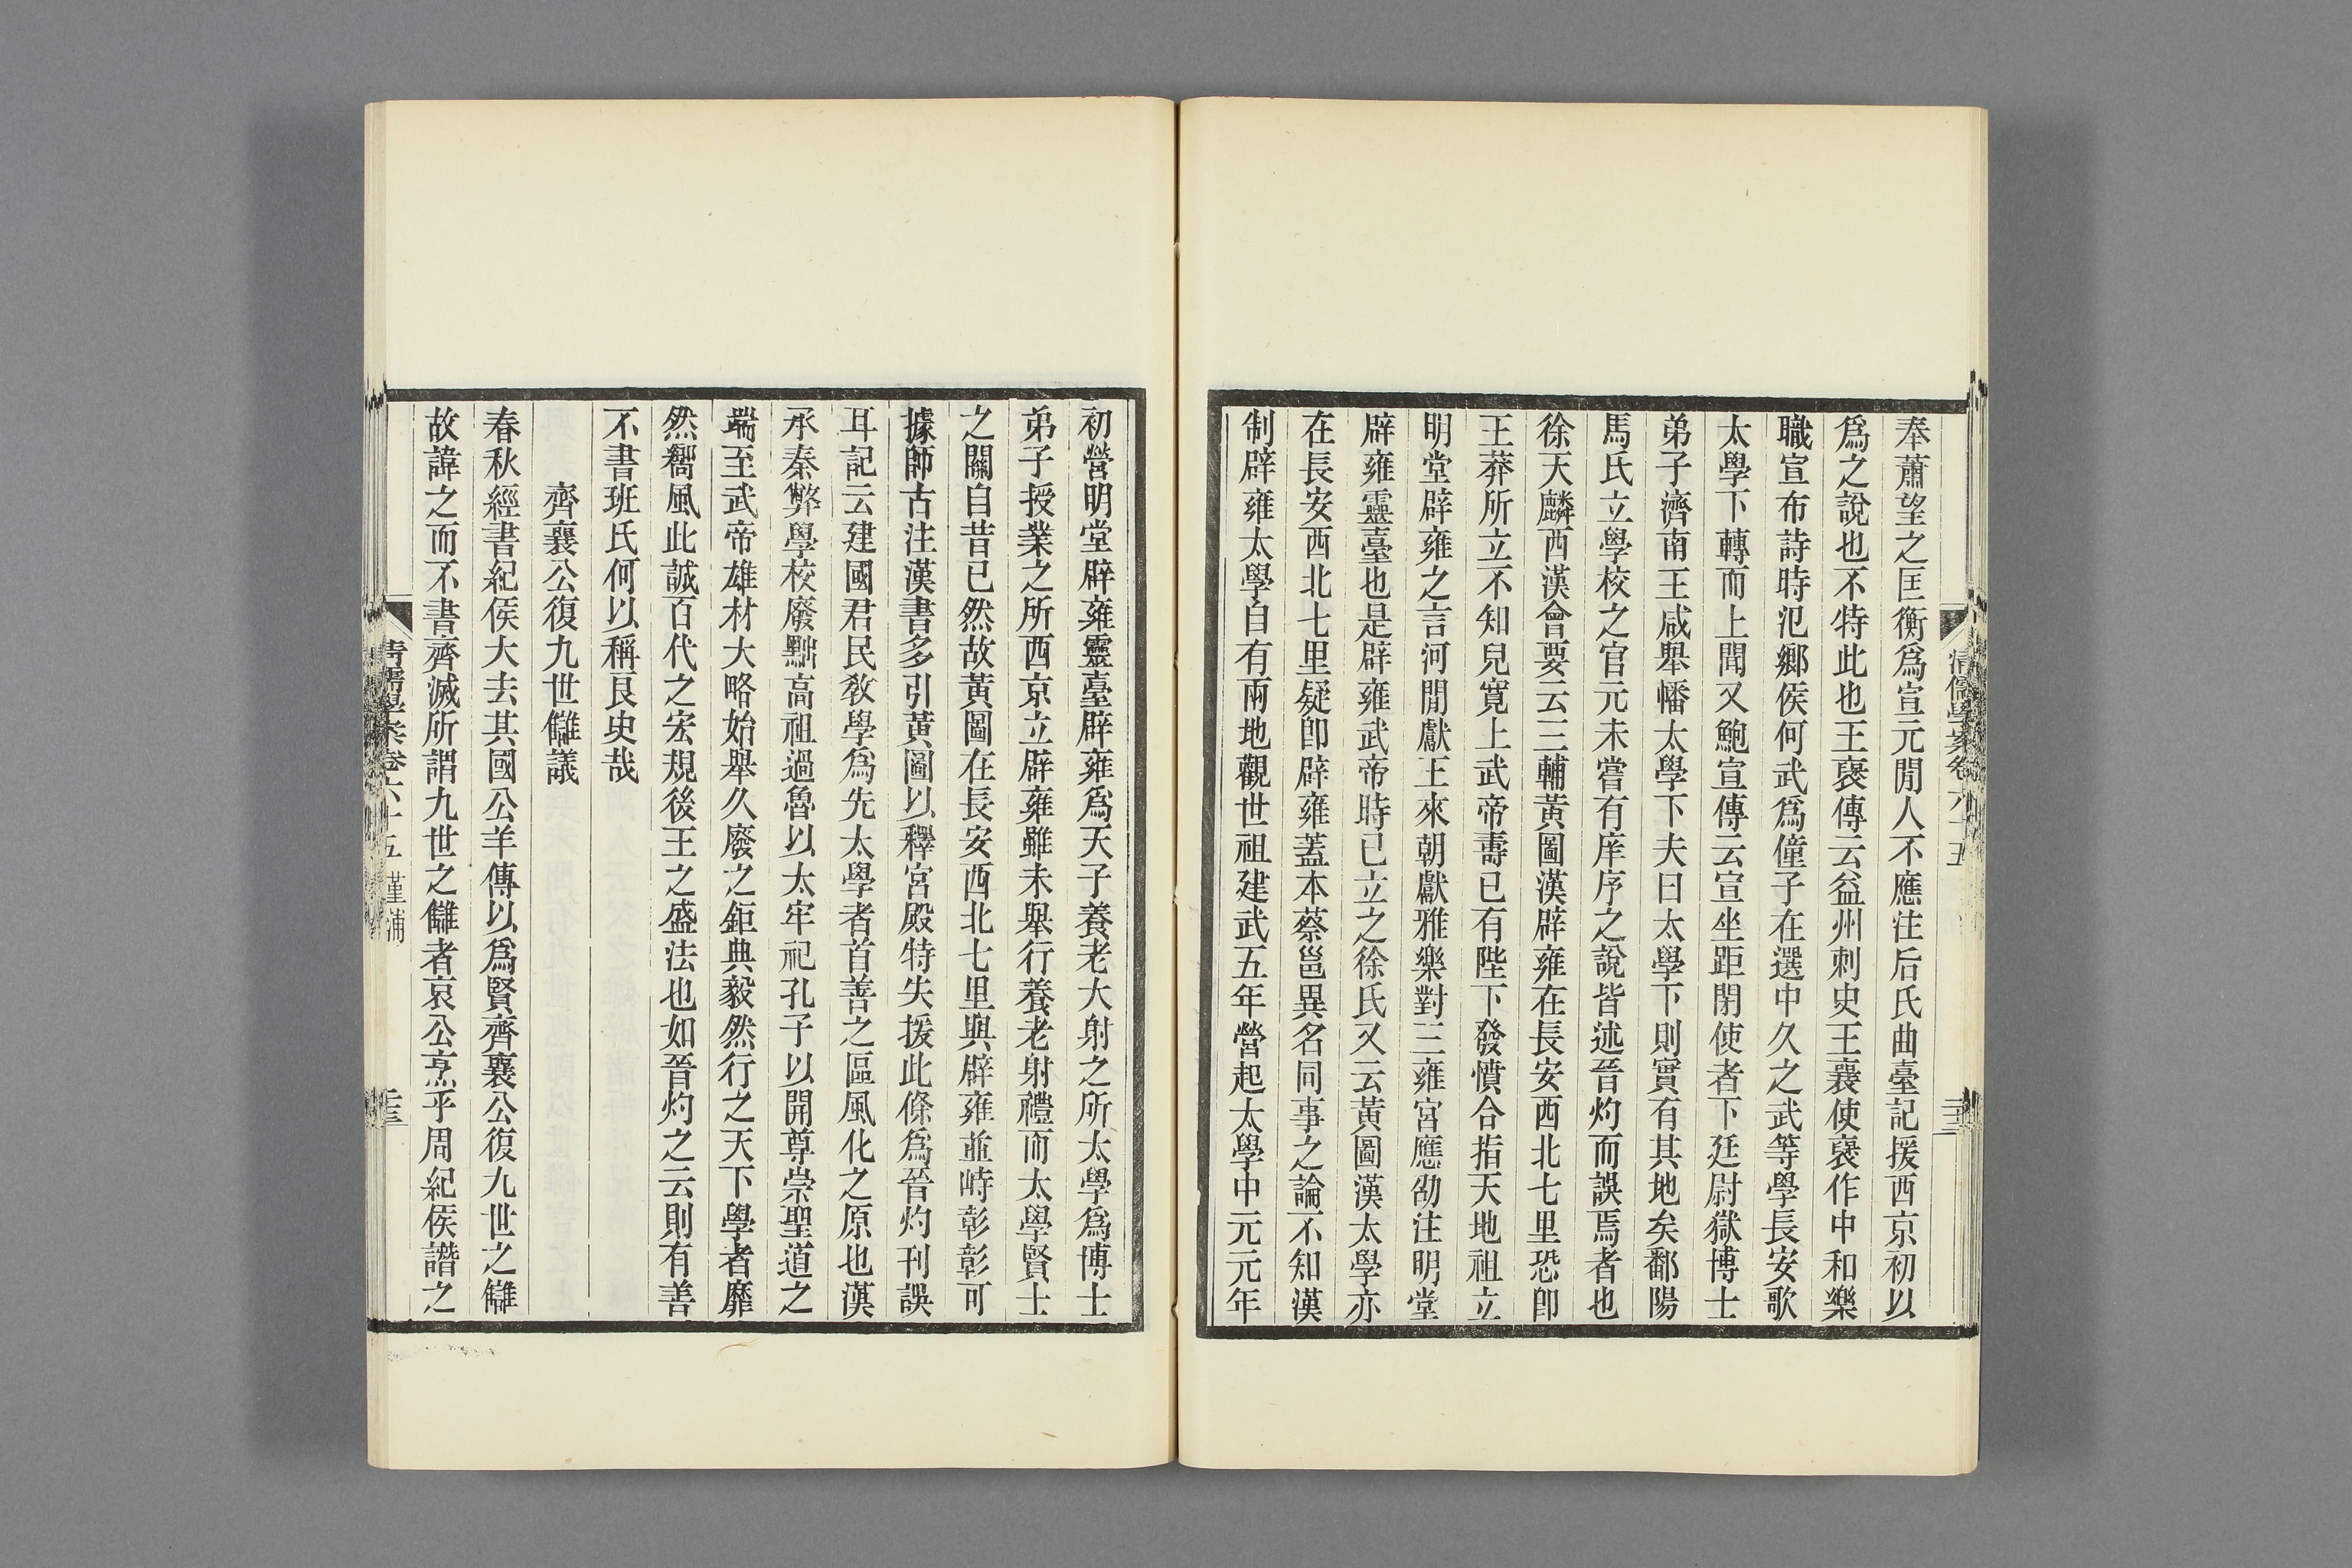 奉蕭望之匡衡爲宣元閒人不應注后氏曲臺記援西京初以
爲之說也不特此也王襃傳云益州刺史王襄使襃作中和樂
職宣布詩時氾鄉侯何武爲僮子在選中久之武等學長安歌
太學下轉而上聞又鮑宣傳云宣坐距閉使者下廷尉獄博士
弟子濟南王咸舉幡太學下夫曰太學下則實有其地矣鄱陽
馬氏立學校之官元未嘗有庠序之說皆述晉灼而誤焉者也
徐天麟西漢會要云三輔黃圖漢辟雍在長安西北七里恐卽
王莽所立不知兒寬上武帝壽已有陛下發憤合指天地祖立
明堂辟雍之言河閒獻王來朝獻雅樂對三雍宮應劭注明堂
辟雍靈臺也是辟雍武帝時已立之徐氏又云黃圖漢太學亦
在長安西北七里疑卽辟雍蓋本蔡邕異名同事之論不知漢
制辟雍太學自有兩地觀世祖建武五年營起太學中元元年
初營明堂辟雍靈臺辟雍爲天子養老大射之所太學爲博士
弟子授業之所西京立辟雍雖未舉行養老射禮而太學賢士
之關自昔已然故黃圖在長安西北七里與辟雍並峙彰彰可
據師古注漢書多引黃圖以釋宮殿特失援此條爲晉灼刊誤
耳記云建國君民敎學爲先太學者首善之區風化之原也漢
承秦弊學校廢黜高祖過魯以太牢祀孔子以開尊崇聖道之
端至武帝雄材大略始舉久廢之鉅典毅然行之天下學者靡
然嚮風此誠百代之宏規後王之盛法也如晉灼之云則有善
不書班氏何以稱良史哉
齊襄公復九世讎議
春秋經書紀侯大去其國公羊傳以爲賢齊襄公復九世之讎
故諱之而不書齊滅所謂九世之讎者哀公烹乎周紀侯譖之
清儒學案卷六十五